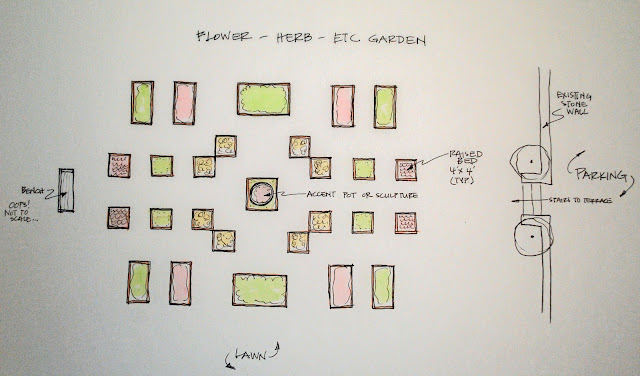 FLOWER - HERB - ETC GARDEN
EXISTING
STONE
WALL
RAISED
BED
4'x4'
(TYP)
PARKING
BENCH
OOPS!
NOT TO
SCALE...
ACCENT POT OR SCULPTURE
STAIRS TO TERRACE
LAWN